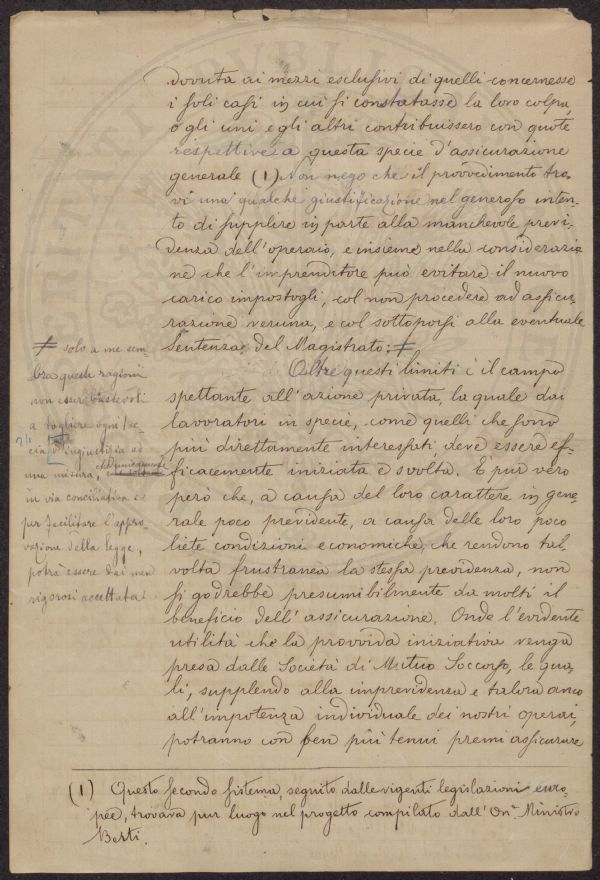 dovuta ai mezzi esclusivi di quelli concernesse
i soli casi in cui si constatasse la loro colpa,
o gli uni e gli altri contribuissero con quote
respettive a questa specie d'assicurazione
generale (1) Non nego che il provvedimento tro-
vi una qualche giustificazione nel generoso inten-
to di supplire in parte alla manchevole previ-
denza dell'operaio, e insieme nella considerazio
ne che l'imprenditore può evitare il nuovo
carico impostogli, col non procedere ad assicu-
razione veruna, e col sottoporsi alla eventuale
Sentenza del Magistrato: ≠
≠ solo a me sem-
bra queste ragioni
non esser bastevoli
a togliere ogni tac-
cia d'ingiustizia ad
una misura, che
in via conciliativa e
per facilitare l'appro-
vazione della legge,
potrà essere dai men
rigorosi accettata!
Oltre questi limiti è il campo
spettante all'azione privata, la quale dai
lavoratori in specie, come quelli che sono
più direttamente interessati, deve essere ef-
ficacemente iniziata e svolta. E pur vero
però che, a causa del loro carattere in gene-
rale poco previdente, a causa delle loro poco
liete condizioni economiche, che rendono tal-
volta frustranea la stessa previdenza, non
si godrebbe presumibilmente da molti il
beneficio dell'assicurazione. Onde l'evidente
utilità che la provvida iniziativa venga
presa dalle Società di Mutuo Soccorso, le qua-
li, supplendo alla imprevidenza e talora anco
all'impotenza individuale dei nostri operai,
potranno con ben più tenui premi assicurare
(1) Questo secondo sistema, seguito dalle vigenti legislazioni euro-
pee, trovava pur luogo nel progetto compilato dall'On. Ministro
Berti.